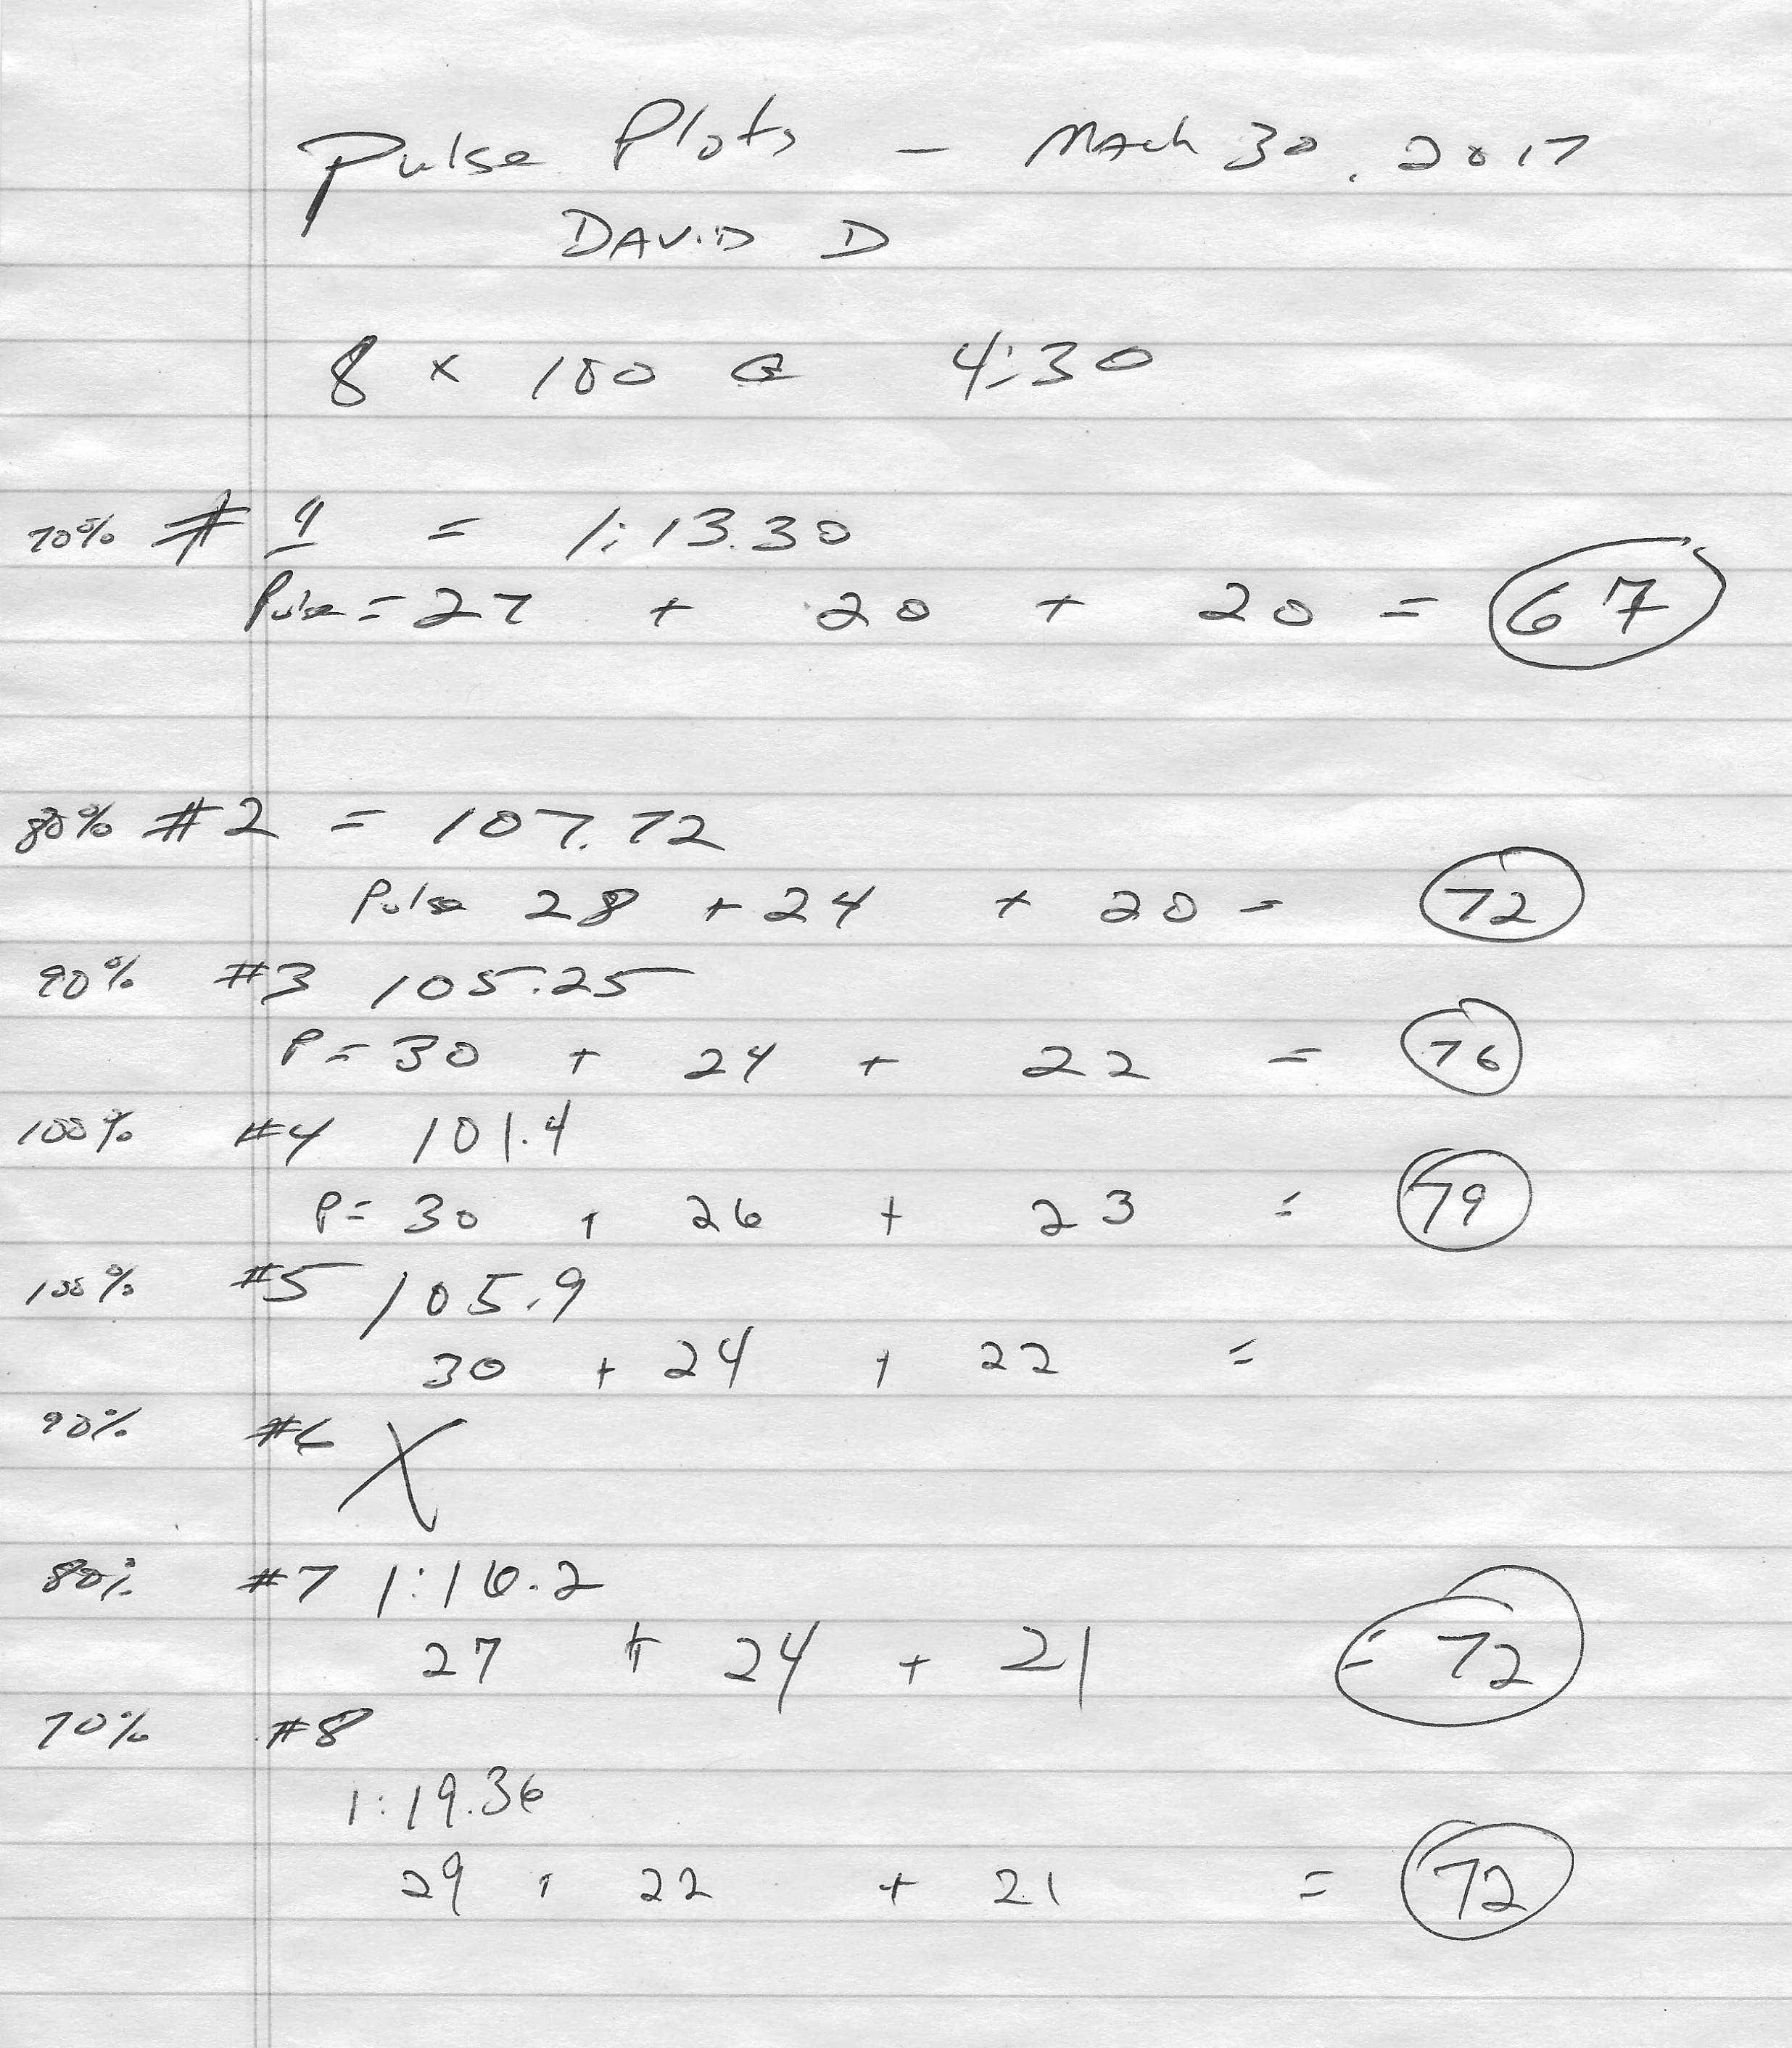 Pulse Plots - March 30, 2017
DAVID D
8 x 100 @ 4:30
70% # 1 = 1:13.30
Pulse = 27 + 20 + 20 = 67
80% #2 = 107.72
Pulse 28 + 24 + 20 = 72
90% #3 105.25
P = 30 + 24 + 22 = 76
100% #4 101.4
P = 30 + 26 + 23 = 79
100% #5 105.9
30 + 24 + 22 =
90% #6 X
80% #7 1:16.2
27 + 24 + 21 = 72
70% #8
1:19.36
29 + 22 + 21 = 72